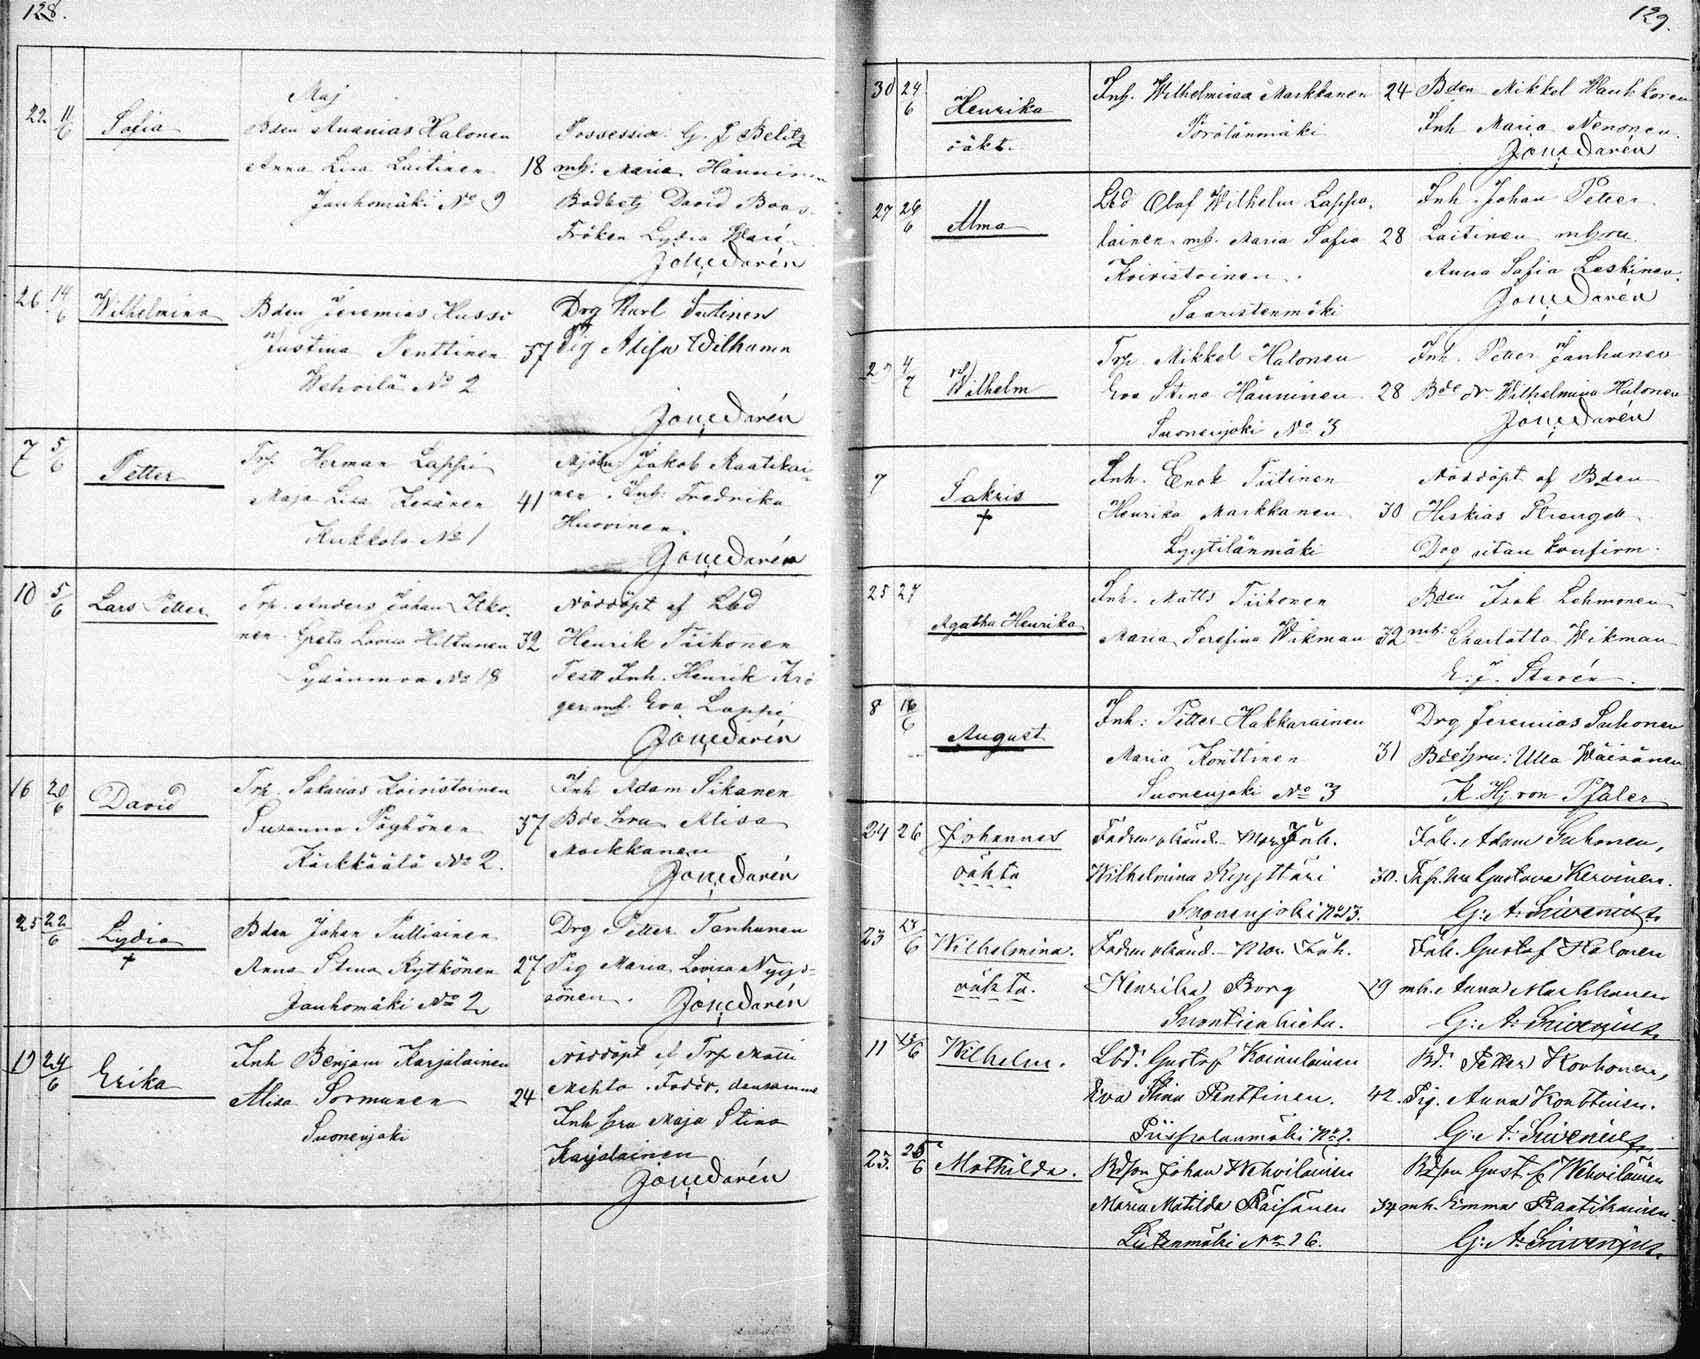 128.
Maj
22 11/6 Sofia Bden Ananias Halonen
Anna Lisa Laitinen 18
Jauhomäki No 9
Possession G. J Belitz
mh. Maria Hänninen
Bodbetj David Boas.
Fröken Lydia
26 14/6 Wilhelmina Bden Jeremias Husso
Justina Penttinen 37
Wehvilä No 2
Drg Karl Sutinen
Pig Alisa Wilhamn
7 5/6 Petter Trp Herman Lappi
Maja Lisa Kesänen 41
Kukkola No 1
Mjöln Jakob Raatikai-
nen. Inh. Fredrika
Huovinen
10 5/6 Lars Petter Trp. Anders Johan Itko-
nen Greta Lovisa Hiltunen 32
No 18
Nöddöpt af Lbd
Henrik Tiihonen
Test Inh. Henrik Krö
ger mh. Eva Lappi
16 20/6 David Trp. Sakarias Koivistoinen
Susanna Pöyhönen 37
Kärkkäälä No 2.
Inh Adam Sikanen
Bde hru Alisa
Markkanen
25 22/6 Lydia † Bden Johan Pulliainen
Anna Stina Rytkönen 27
Jauhomäki No 2
Drg Petter Tanhunen
Pig Maria Lovisa Nyys-
sönen.
19 24/6 Erika Inh Benjam Karjalainen
Alisa Sormunen 24
Suonenjoki
Nöddöpt af Trp Matti
Mehto. Fadd. densamme
Inh hru Maja Stina
Karjalainen
129.
30 24/6 Henrika oäkt. Inh. Wilhelmina Markkanen 24
Pörölänmäki
Bden Mikkel Hauhkonen
Inh Maria Nenonen
27 26/6 Alma Lbd Olof Wilhelm Lappa-
lainen mh. Maria Sofia 28
Koivistoinen.
Saaristenmäki
Inh. Johan Petter
Laitinen mhru
Anna Sofia Leskinen
4/7 Wilhelm Trp. Mikkel Halonen
Eva Stina Hänninen 28
Suonenjoki No 3
Inh. Petter Janhunen
Bde dr Wilhelmina Halonen
7 Sakris † Inh. Enok Tiitinen
Henrika Markkanen 30
Lyytilänmäki
Nöddöpt af Bden
Hiskias Strengell
Dog utan konfirm.
25 27 Agatha Henrika Inh. Matts Tiihonen
Maria Serefina Wikman 32
Bden Isak Lehmonen
mh. Charlotta Wikman
E. J. Starén.
8 16/6 August. Inh: Petter Hakkarainen
Maria Konttinen 31
Suonenjoki No 3
Drg Jeremias Suhonen
Bdehru: Ulla Wäisänen
K. Hj von Pfaler
24 26 Johannes oäkta Fadren okänd. Mor Inh.
Wilhelmina Ryyttäri 30.
Suonenjoki No 3.
Inh. Adam Suhonen,
Trp. hu Gustava Kervinen.
G: A: Sirenius
23 Wilhelmina. oäkta. Fadren okänd. Mor Inh.
Henrika Borg 29
Suontienhieta.
Inh. Gustaf Halonen
mh. Anna Markkanen
G: A: Sirenius
11 Wilhelm. Lbd. Gustaf Kainulainen
Eva Stina Penttinen. 42.
Piispalanmäki
Bd. Petter Korhonen,
Pig. Anna Konttinen.
G: A: Sirenius
23. 25/6 Mathilda. Bdson Johan Wehvilainen
Maria Matilda Räisänen 34
Lietenmäki No 26.
Bdson Gust. Wehviläinen
mh. Emma Raatikainen.
G: A: Sirenius